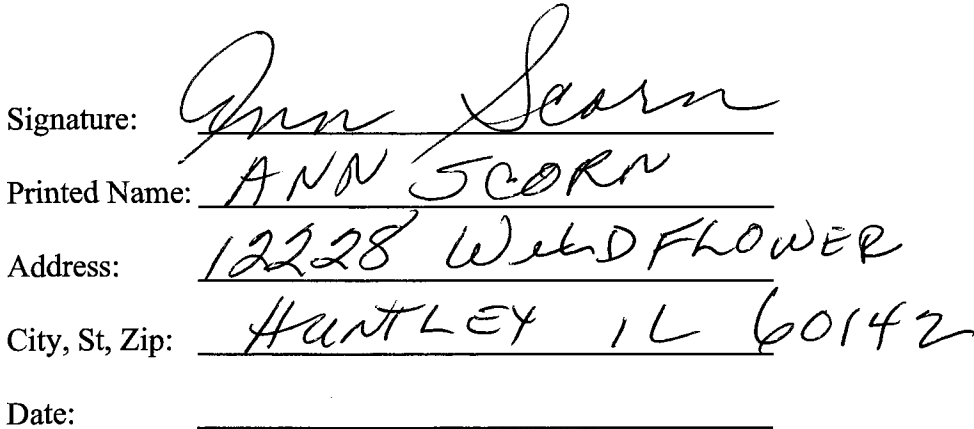 Signature: Ann Scorn
Printed Name: ANN SCORN
Address: 12228 WILDFLOWER
City, St, Zip: HUNTLEY IL 60142
Date: